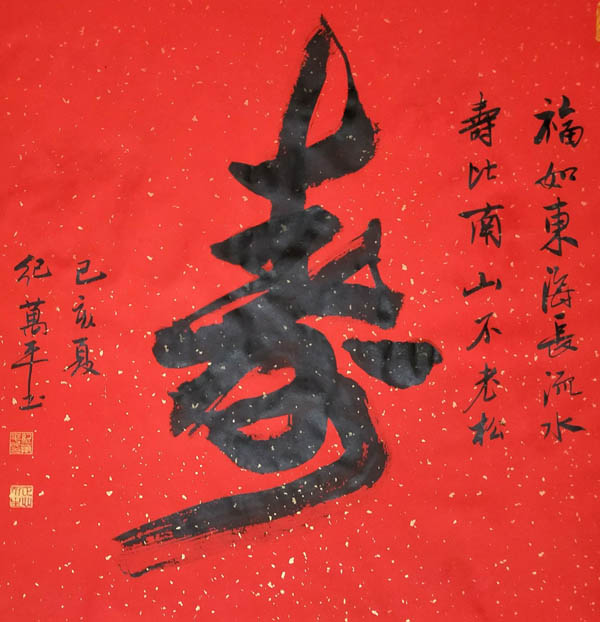 福如東海長流水
壽比南山不老松
壽
己亥夏
紀萬平书